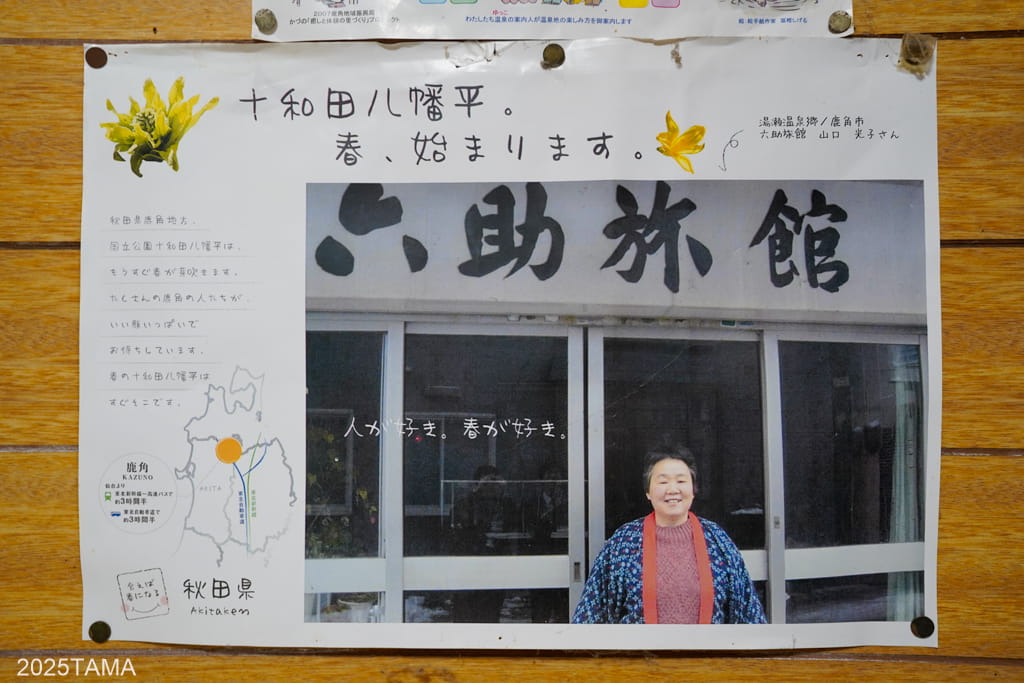 2007鹿角地域振興局
かづの「癒しと体験の里づくり」プロジェクト
ゆっこ
わたしたち温泉の案内人が温泉地の楽しみ方を御案内します
十和田八幡平。
春、始まります。
湯瀬温泉郷/鹿角市
六助旅館 山口 光子さん
秋田県鹿角地方、
国立公園十和田八幡平は、
もうすぐ春が芽吹きます。
たくさんの鹿角の人たちが、
いい顔いっぱいで
お待ちしています。
春の十和田八幡平は
すぐそこです。
六助旅館
人が好き。春が好き。
鹿角
KAZUNO
仙台より
東北新幹線〜高速バスで
約3時間半
東北自動車道で
約3時間半
AKITA
東北自動車道
東北新幹線
会えば
春になる
秋田県
Akitaken
2025TAMA